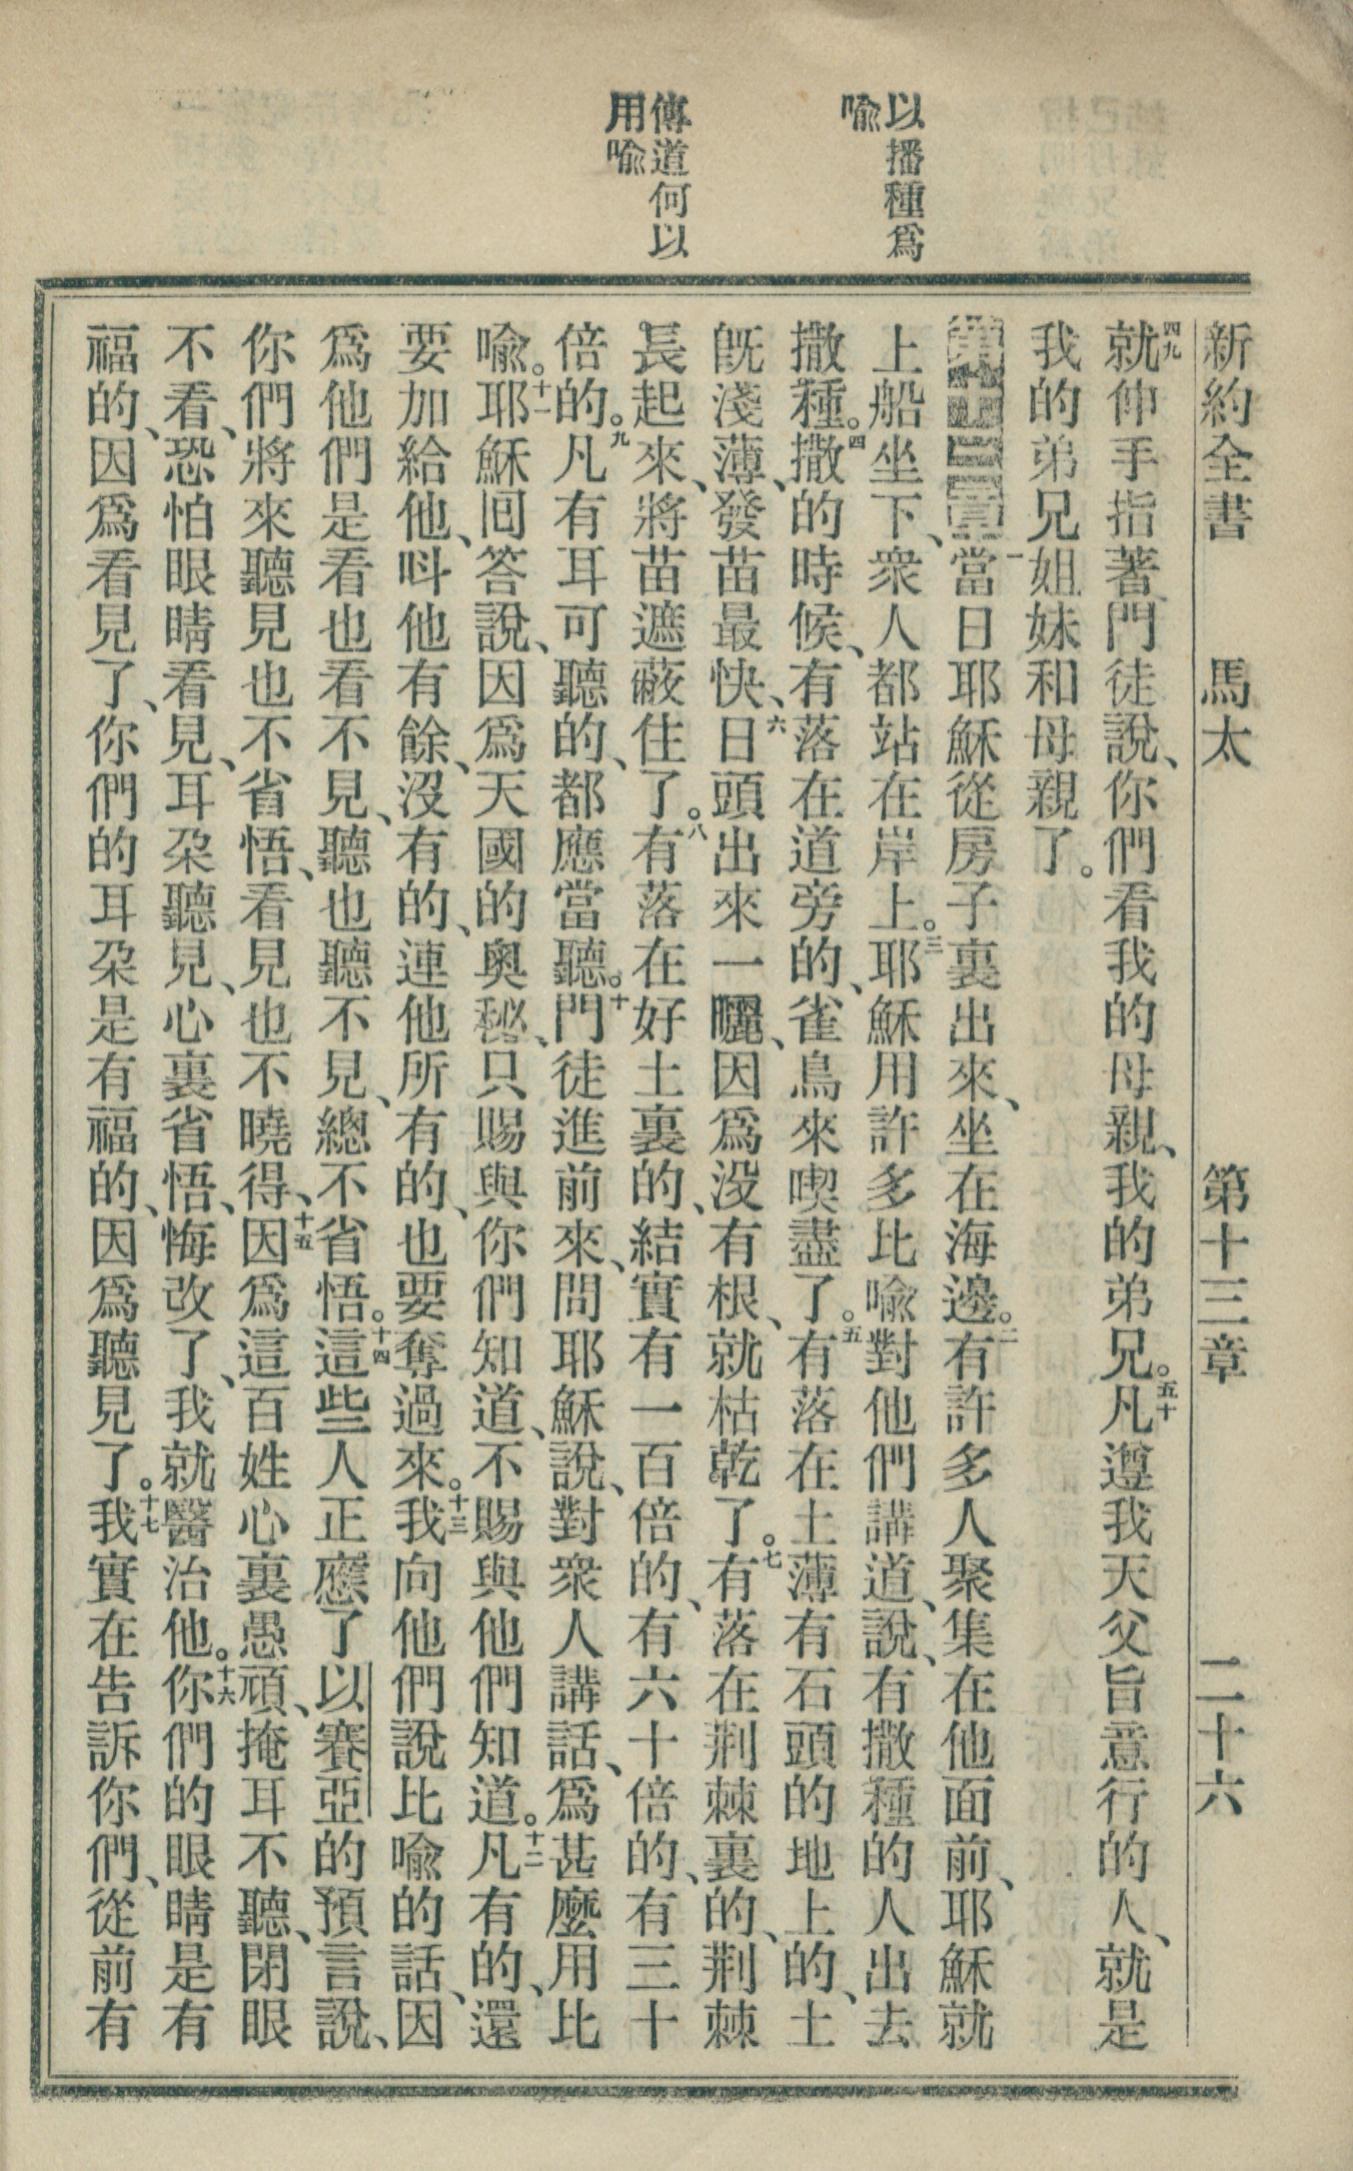 新約全書　馬太　第十三章　二十六
以播種爲
喻
傳道何以
用喻
四九就伸手指著門徒說、你們看我的母親、我的弟兄。五十凡遵我天父旨意行的人、就是
我的弟兄姐妹和母親了。
第十三章 一當日耶穌從房子裏出來、坐在海邊。二有許多人聚集在他面前、耶穌就
上船坐下、衆人都站在岸上。三耶穌用許多比喻對他們講道、說、有撒種的人出去
撒種。四撒的時候、有落在道旁的、雀鳥來喫盡了。五有落在土薄有石頭的地上的、土
旣淺薄、發苗最快、六日頭出來一曬、因爲沒有根、就枯乾了。七有落在荆棘裏的、荆棘
長起來、將苗遮蔽住了。八有落在好土裏的、結實有一百倍的、有六十倍的、有三十
倍的。九凡有耳可聽的、都應當聽。十門徒進前來、問耶穌說、對衆人講話、爲甚麽用比
喻。十一耶穌囘答說、因爲天國的奧秘、只賜與你們知道、不賜與他們知道。十二凡有的、還
要加給他、呌他有餘、沒有的、連他所有的、也要奪過來。十三我向他們說比喻的話、因
爲他們是看也看不見、聽也聽不見、總不省悟。十四這些人正應了以賽亞的預言說、
你們將來聽見也不省悟、看見也不曉得、十五因爲這百姓心裏愚頑、掩耳不聽、閉眼
不看、恐怕眼睛看見、耳朶聽見、心裏省悟、悔改了、我就醫治他。十六你們的眼睛是有
福的、因爲看見了、你們的耳朶是有福的、因爲聽見了。十七我實在告訴你們、從前有